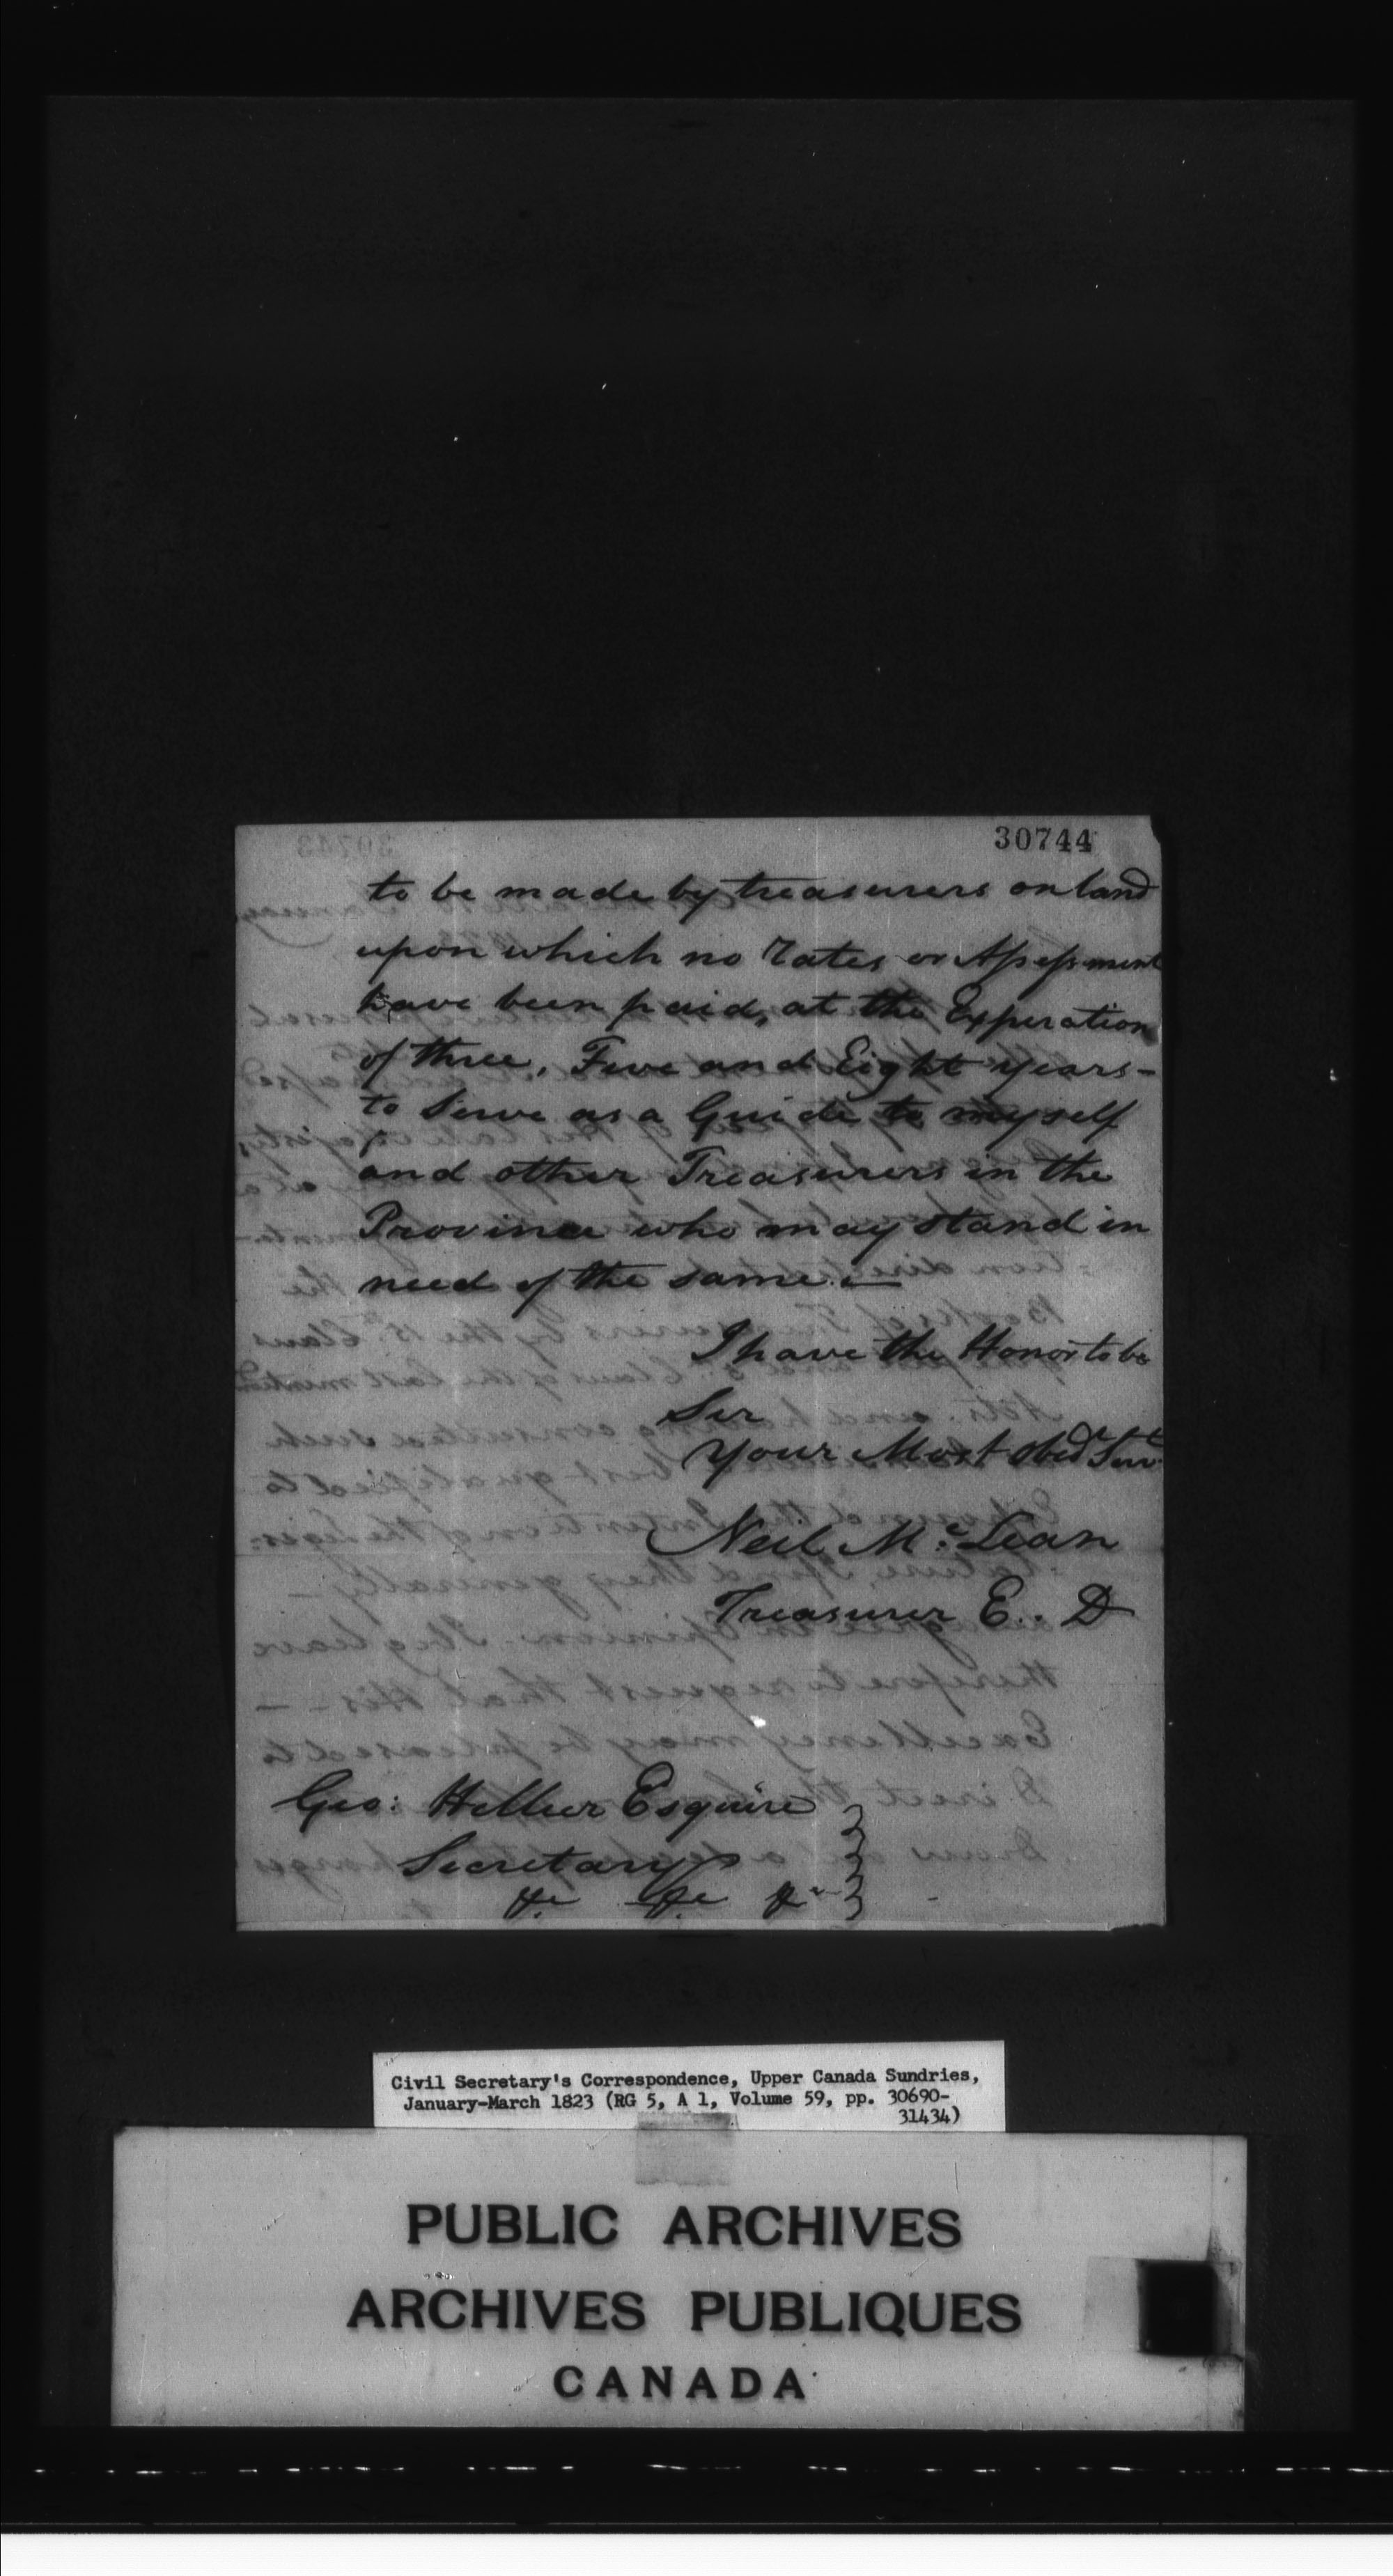 30744
to be made by treasurers on land
upon which no Rates or Assessment
have been paid, at the Experation
of three, Five and Eight years -
to Serve as a Guide to myself
and other Treasurers in the
Province who may stand in
need of the same. —
I have the Honor to be
Sir
Your Most Obedt Servt
Neil McLean
Treasurer E. D
Geo: Hillier Esquire
Secretary
&c &c &c
Civil Secretary's Correspondence, Upper Canada Sundries,
January-March 1823 (RG 5, A 1, Volume 59, pp. 30690-
31434)
PUBLIC ARCHIVES
ARCHIVES PUBLIQUES
CANADA